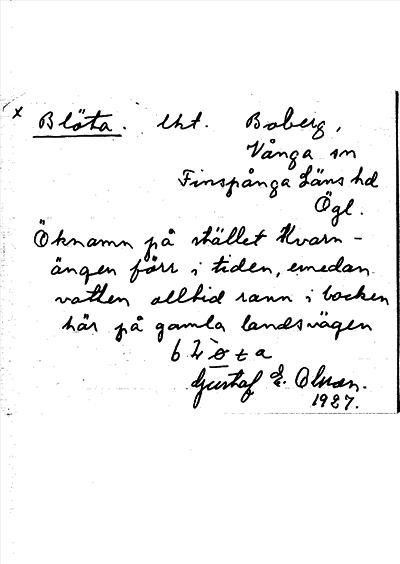 x Blöta. lht. Boberg,
Vånga sn
Finspånga Läns hd
Ögl.
Öknamn på stället Kvarn-
ängen förr i tiden, emedan
vatten alltid rann i backen
här på gamla landsvägen
Gustaf E. Olsson.
1927.